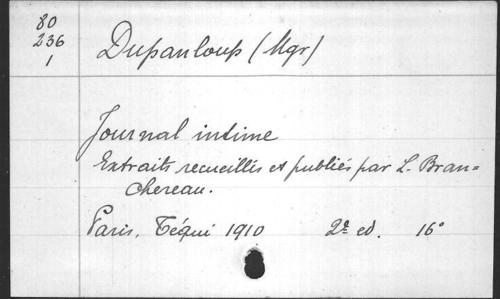 80
236
1
Dupanloup (Mgr)
Journal intime
Extraits recueillis et publiés par L. Bran=
chereau.
Paris, Téqui 1910 2e ed. 16°